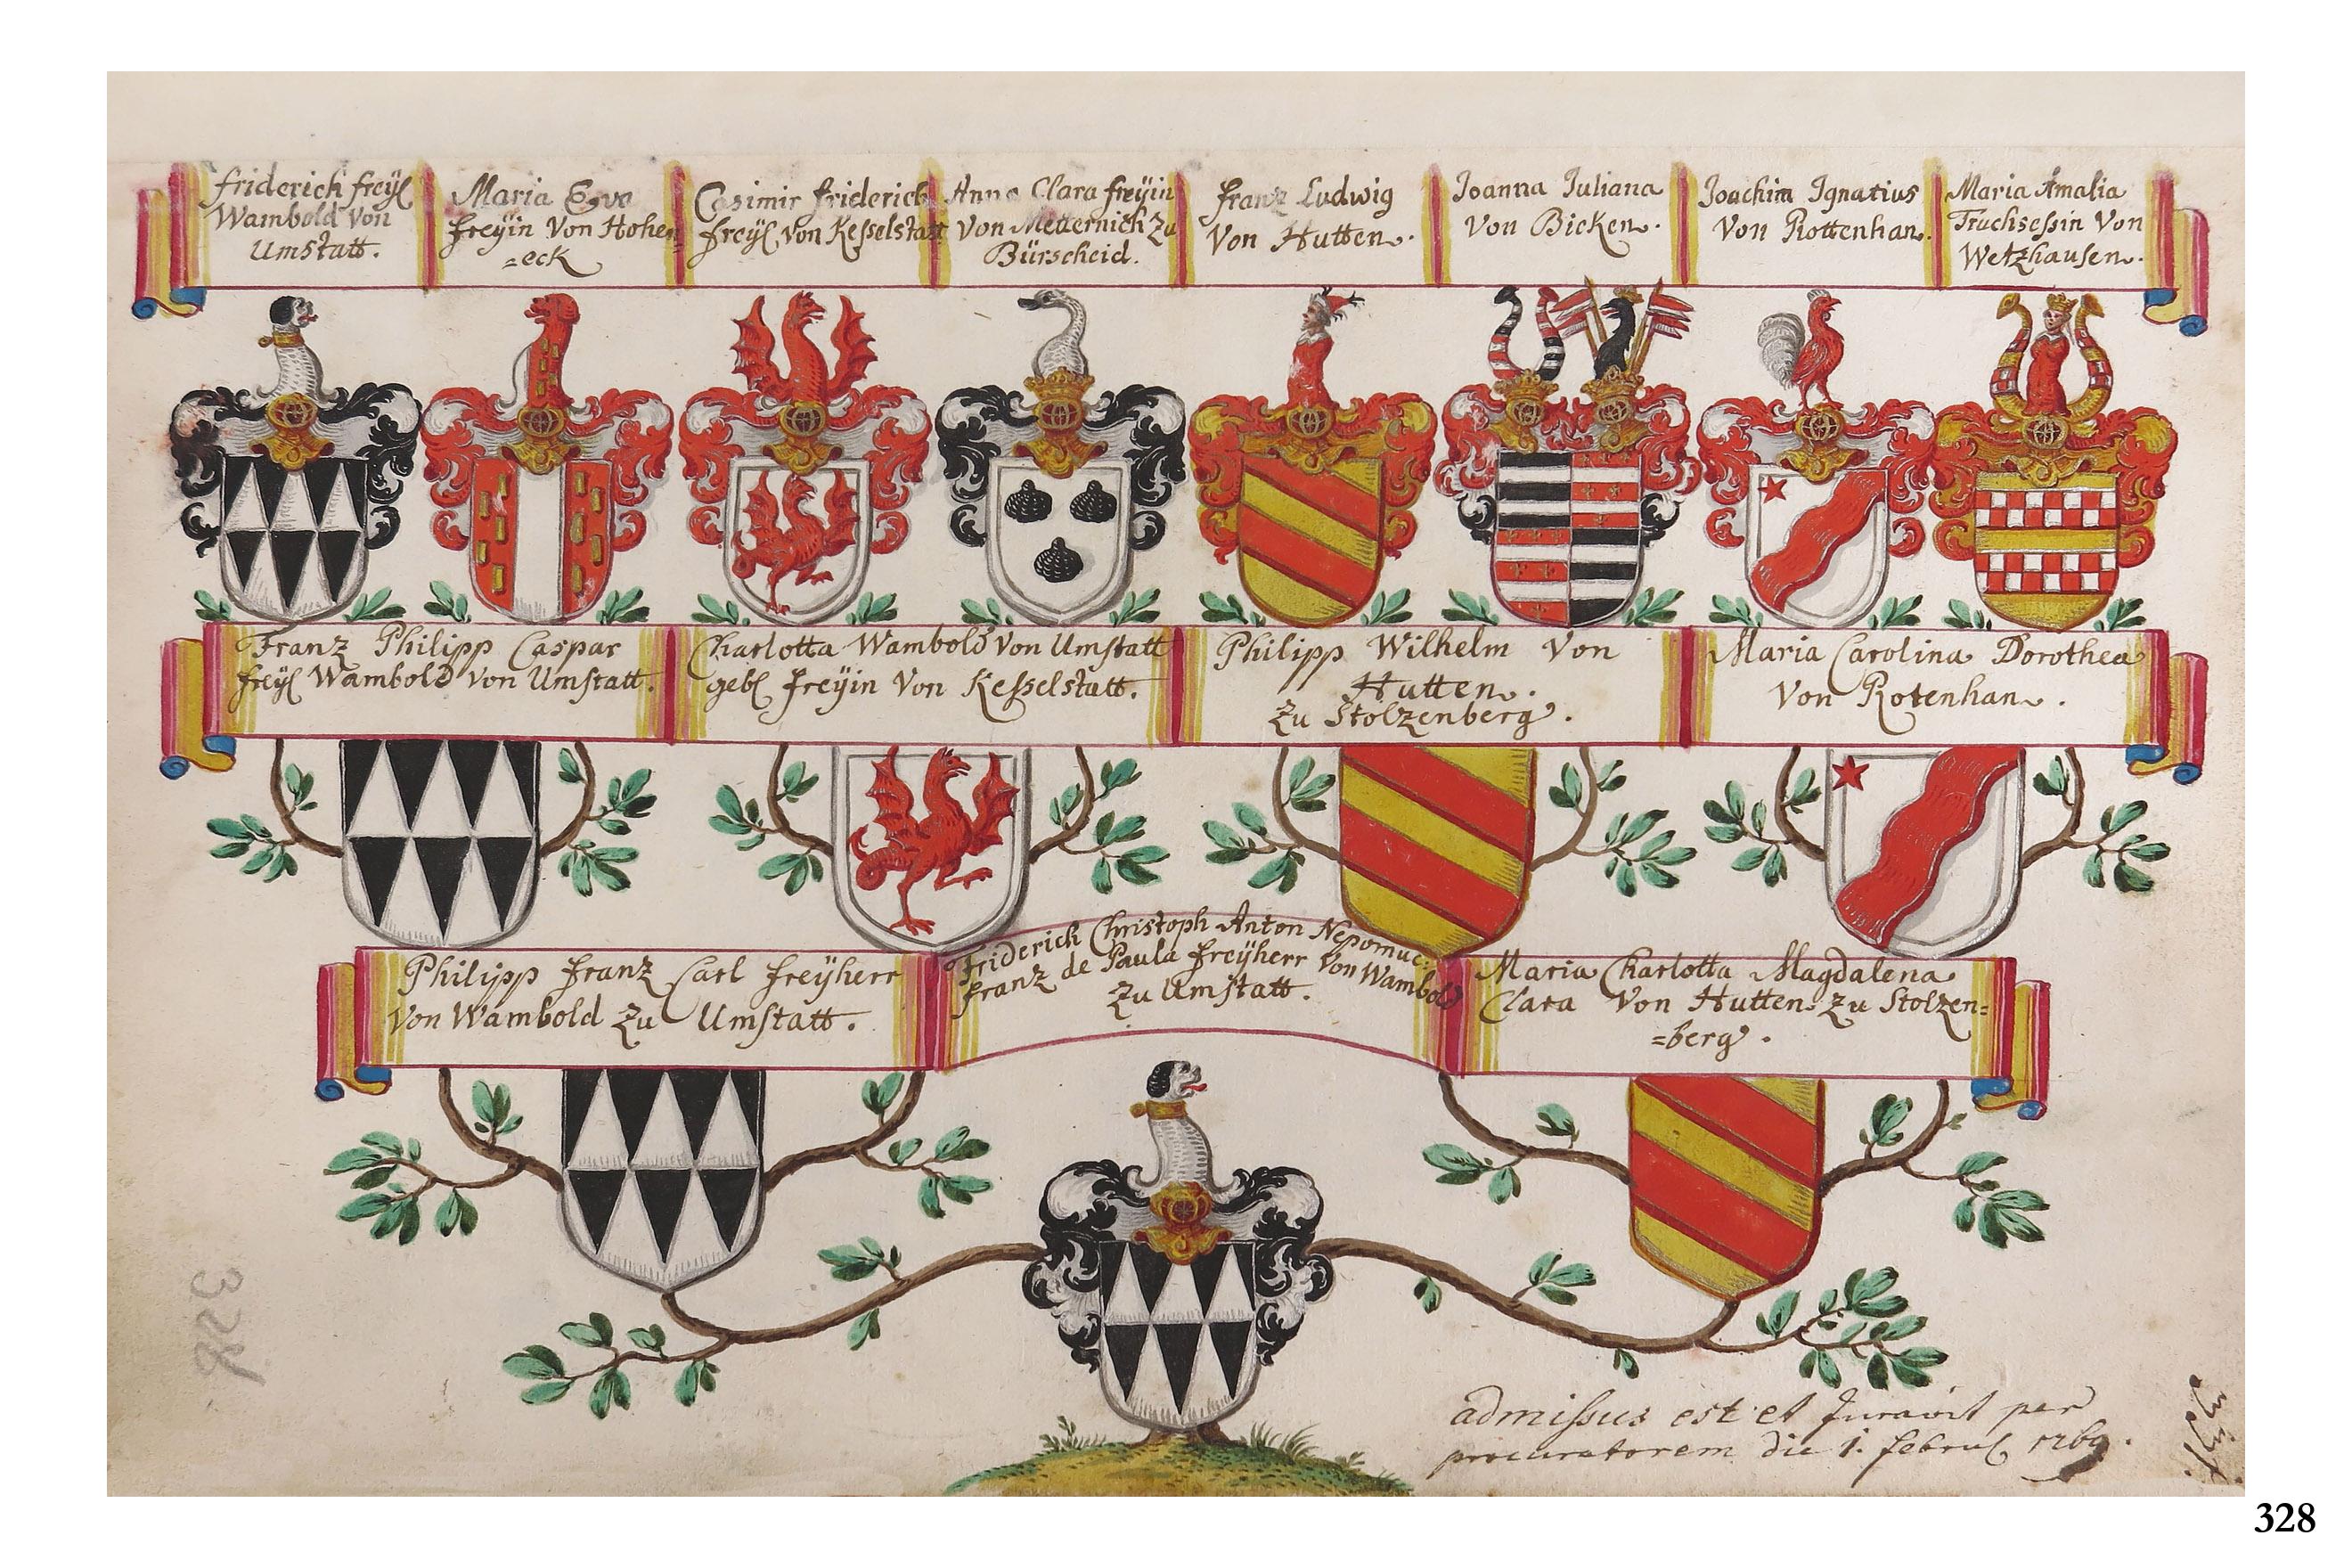 friderich freÿl
Wambold Von
Umstatt.
Maria Eva
freÿin Von Hohen
=eck
Casimir friderich
freÿl von Kesselstatt
Anna Clara freÿin
Von Metternich Zu
Bürscheid.
franz Ludwig
Von Hutten.
Joanna Juliana
Von Bicken.
Joachim Ignatius
Von Rottenhan.
Maria Amalia
Truchsessin Von
Wetzhausen.
Franz Philipp Caspar
freÿl Wambold Von Umstatt.
Charlotta Wambold Von Umstatt
gebl freÿin Von Kesselstatt.
Philipp Wilhelm Von
Hutten.
Zu Stolzenberg.
Maria Carolina Dorothea
Von Rotenhan.
Philipp franz Carl freÿherr
Von Wambold Zu Umstatt.
Friderich Christoph Anton Nepomuc:
franz de Paula freÿherr Von Wambold
Zu Umstatt.
Maria Charlotta Magdalena
Clara Von Hutten Zu Stolzen=
=berg.
admissus est et Juravit per
procuratorem die 1. februl 1769.
328
328